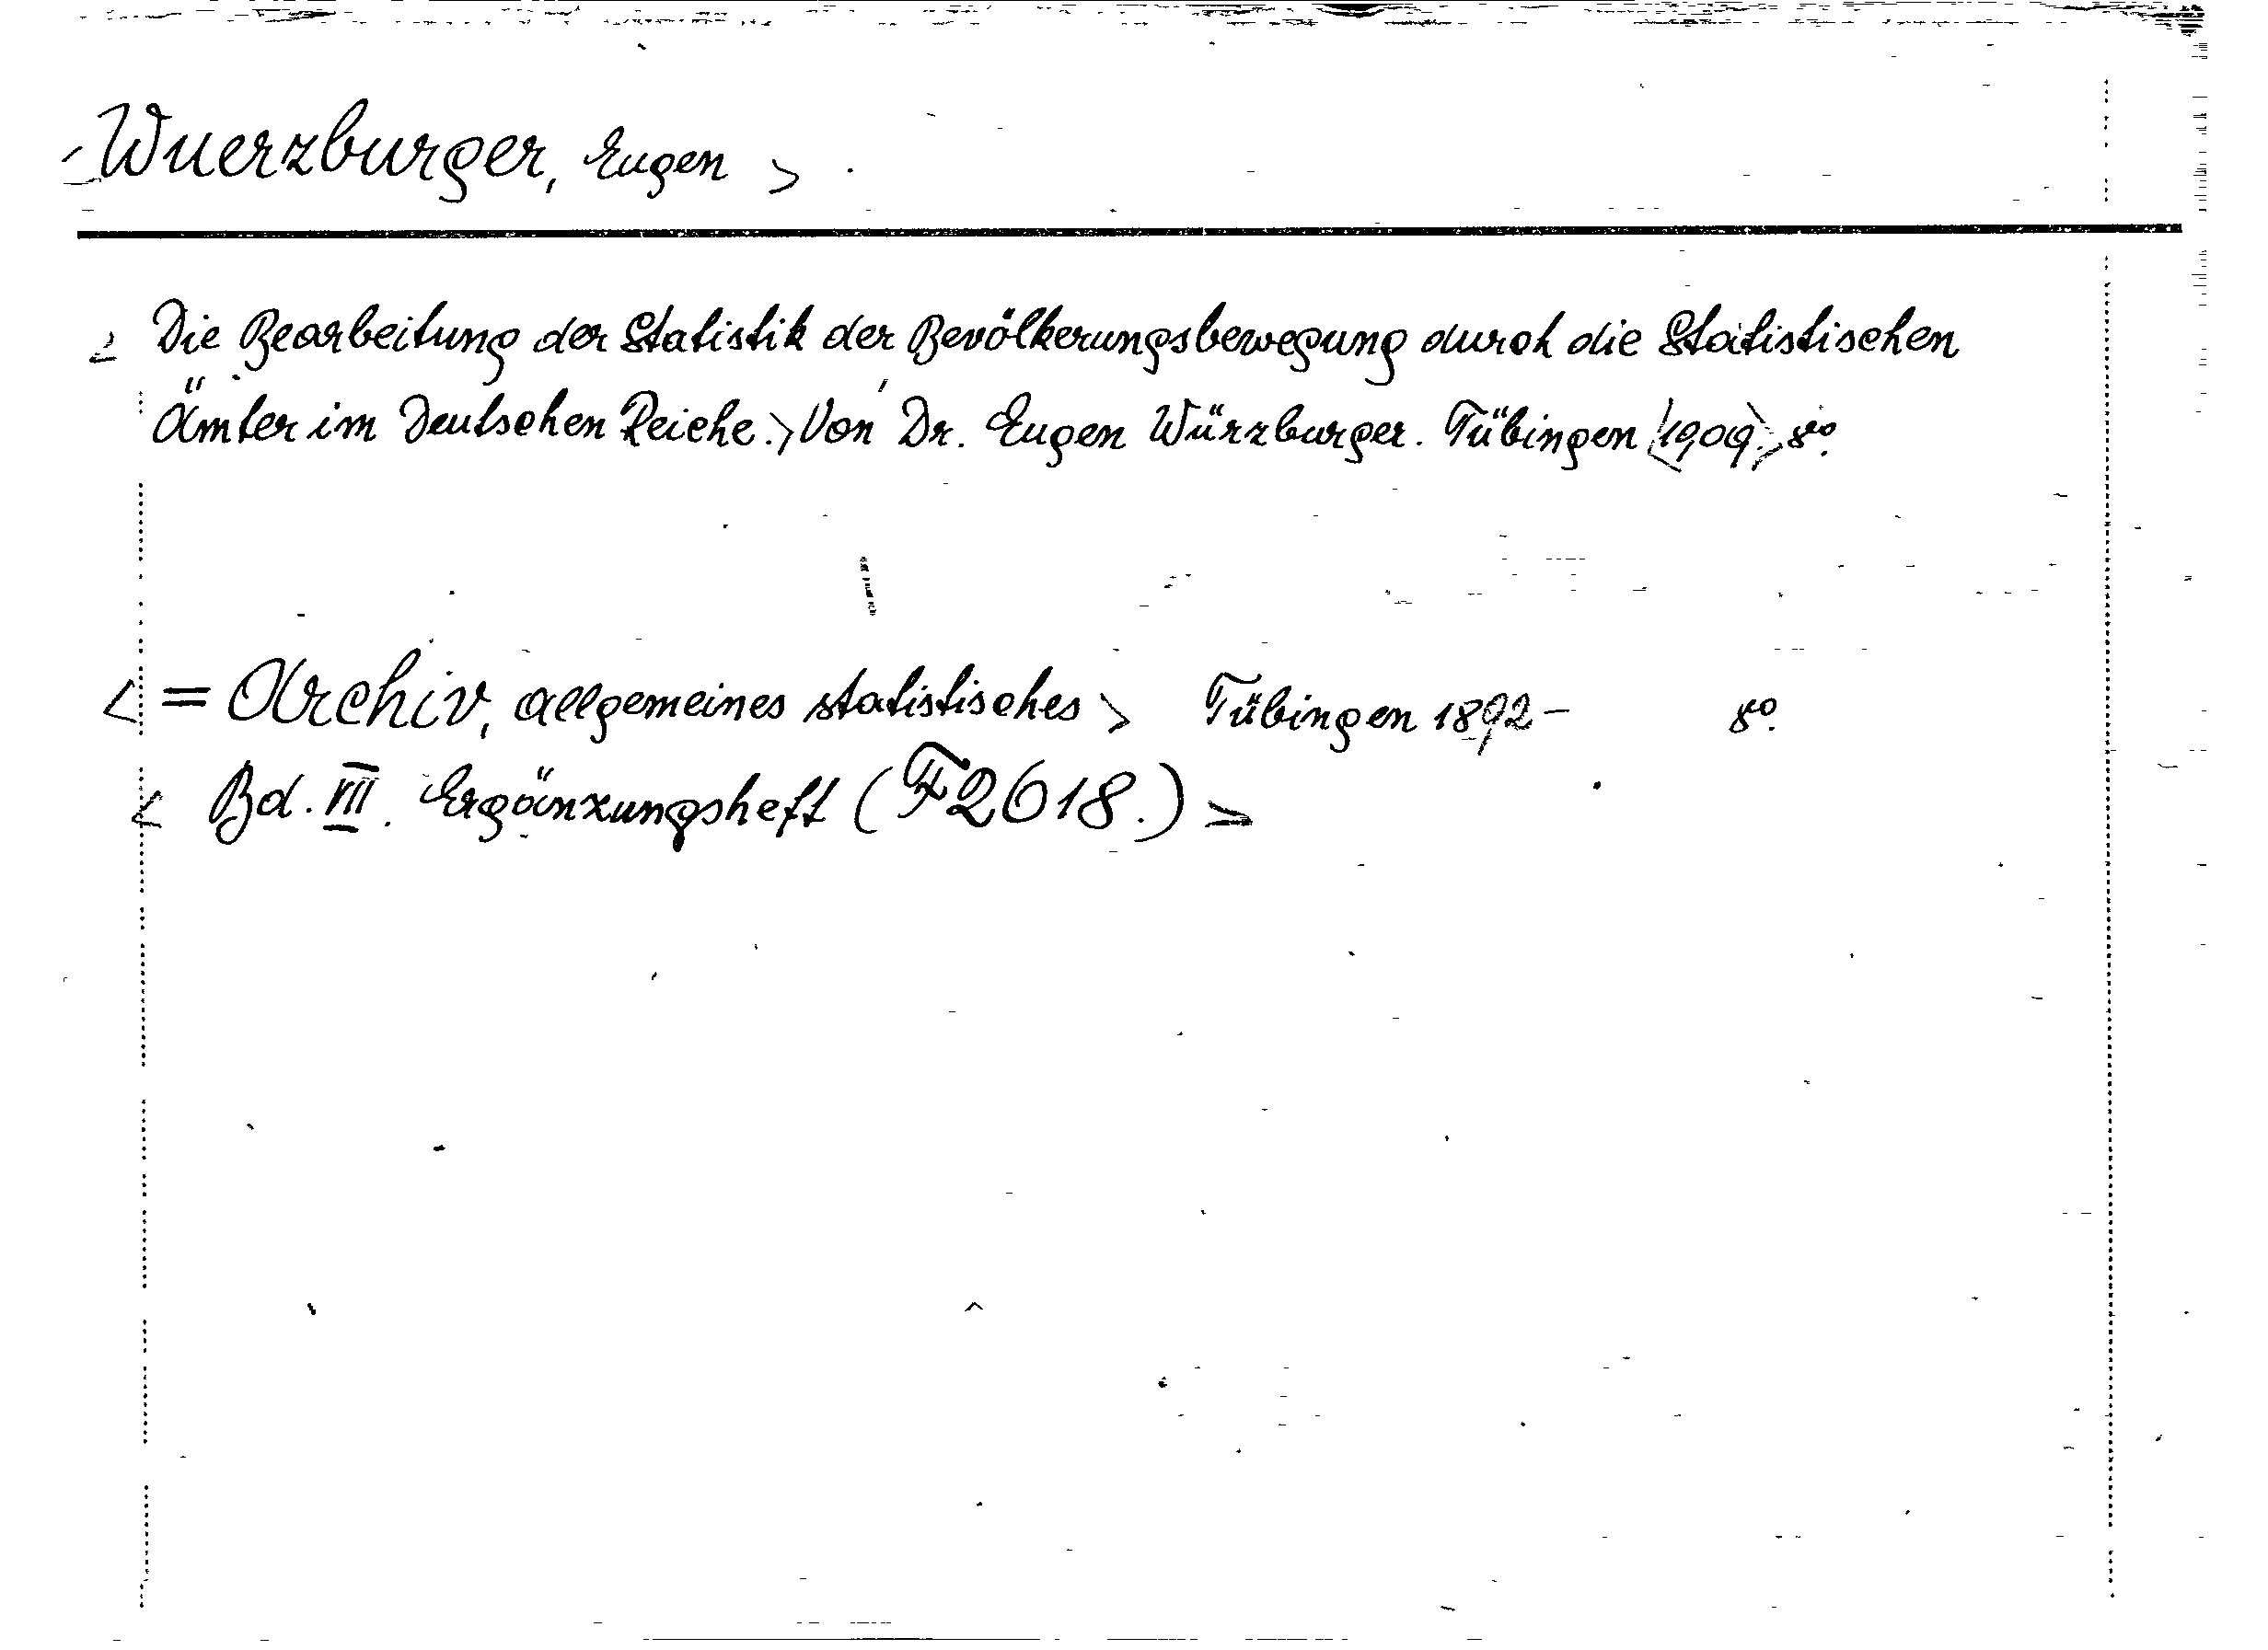 <Wuerzburger, Eugen >
< Die Bearbeitung der Statistik der Bevölkerungsbewegung durch die Statistischen
Ämter im Deutschen Reiche.> Von Dr. Eugen Würzburger. Tübingen <1909.> 8º.
< = Archiv, allgemeines statistisches > Tübingen 1892- 8º.
< Bd. VII. Ergänzungsheft (F2618.) >